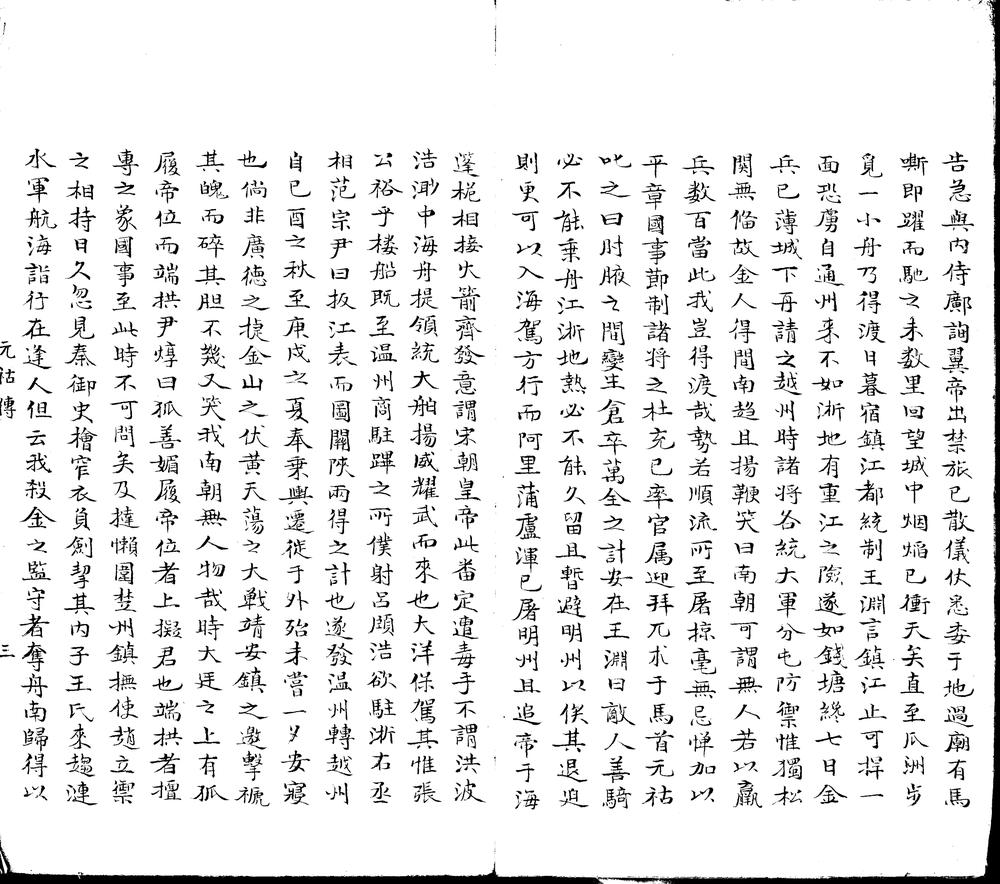 告急與内侍鄺詢翼帝出禁旅已散儀仗悉委于地過廟有馬
嘶即躍而馳之未数里回望城中烟焰已衝天矣直至瓜洲步
覓一小舟乃得渡日暮宿鎮江都統制王淵言鎮江止可捍一
面恐虜自通州来不如浙地有重江之險遂如錢塘終七日金
兵已薄城下再請之越州時諸将各統大軍分屯防禦惟獨松
関無俻故金人得間南趋且揚鞭笑曰南朝可謂無人若以羸
兵数百當此我豈得渡哉勢若順流所至屠掠毫無忌憚加以
平章國事節制諸将之杜充已率官属迎拜兀朮于馬首元祐
叱之曰肘腋之間變生倉卒萬全之計安在王淵曰敵人善騎
必不能乗舟江浙地熱必不能久留且暫避明州以俟其退迫
則更可以入海駕方行而阿里蒲盧渾已屠明州且追帝于海
蓬桅相接火箭齊發意謂宋朝皇帝此番定遭毒手不謂洪波
浩渺中海舟提領統大舶揚威耀武而來也大洋保駕其惟張
公裕乎楼船既至温州商駐蹕之所僕射呂頤浩欲駐浙右丞
相范宗尹曰扳江表而圖關陝兩得之計也遂發温州轉越州
自己酉之秋至庚戌之夏奉乗輿遷徙于外殆未嘗一夕安寢
也倘非廣德之捷金山之伏黄天蕩之大戰靖安鎮之邀擊褫
其魄而碎其胆不幾又笑我南朝無人物哉時大廷之上有狐
履帝位而端拱尹焞曰狐善媚履帝位者上擬君也端拱者擅
專之象國事至此時不可問矣及撻懶圍楚州鎮撫使趙立禦
之相持日久忽見秦御史檜窄衣負劍挈其内子王氏來趨漣
水軍航海詣行在逢人但云我殺金之監守者奪舟南歸得以
元祐傳
三